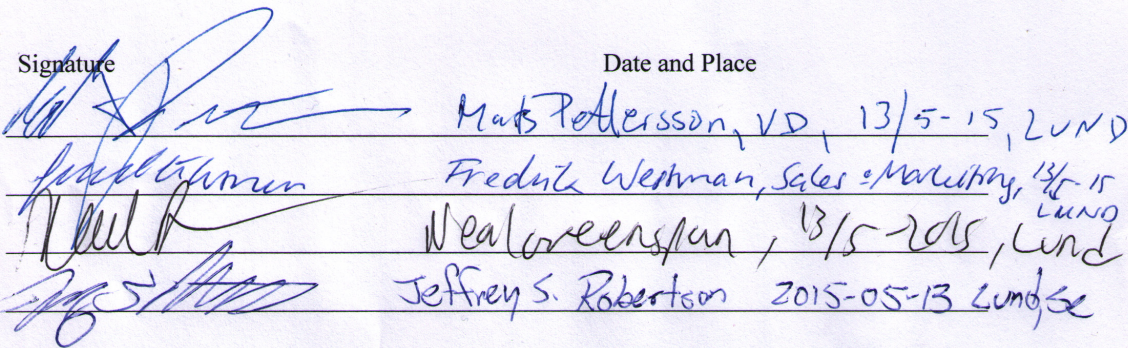 Signature Date and Place
Mats Pettersson, VD, 13/5-15, LUND
Fredrik Westman, Sales & Marketing, 13/5-15
LUND
Neal Greenspan, 13/5-2015, Lund
Jeffrey S. Robertson 2015-05-13 Lund, Se